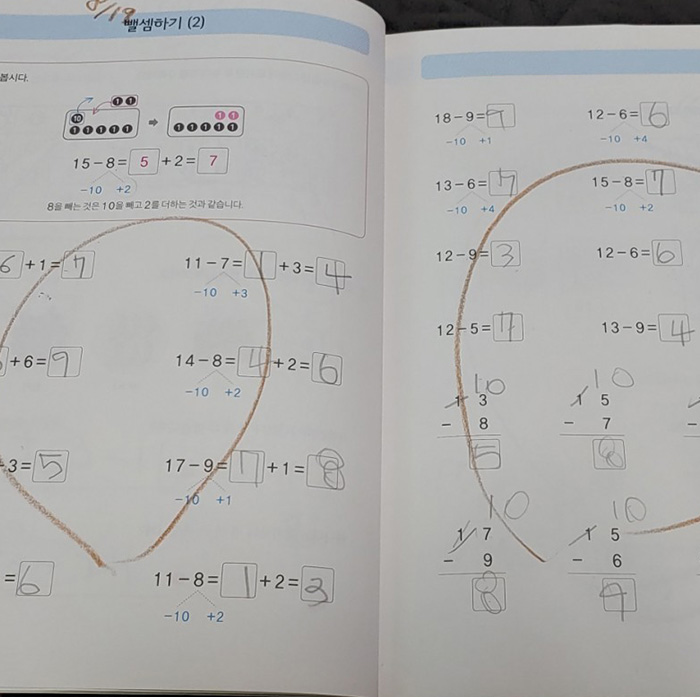 8/19
뺄셈하기 (2)
봅시다.
10 1 1
1 1 1 1 1 ➡ 1 1 1 1 1 1 1
15 − 8 = 5 + 2 = 7
−10 +2
8을 빼는 것은 10을 빼고 2를 더하는 것과 같습니다.
6 + 1 = 7
11 − 7 = 1 + 3 = 4
−10 +3
+ 6 = 9
14 − 8 = 4 + 2 = 6
−10 +2
3 = 5
17 − 9 = 7 + 1 = 8
−10 +1
= 6
11 − 8 = 1 + 2 = 3
−10 +2
18 − 9 = 9
−10 +1
12 − 6 = 6
−10 +4
13 − 6 = 7
−10 +4
15 − 8 = 7
−10 +2
12 − 9 = 3
12 − 6 = 6
12 − 5 = 7
13 − 9 = 4
10
1 3
− 8
5
10
1 5
− 7
8
−
10
1 7
− 9
8
10
1 5
− 6
9